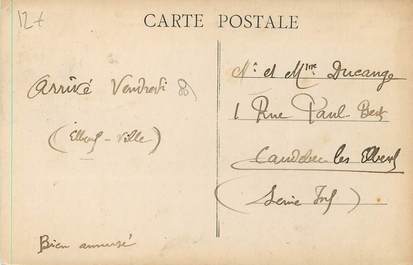 12+
CARTE POSTALE
Arrivé Vendredi 8
(Elbeuf-Ville)
Bien amusé
Mr et Mme Ducange
1 Rue Paul-Bert
Caudebec les Elbeuf
(Seine Inf)